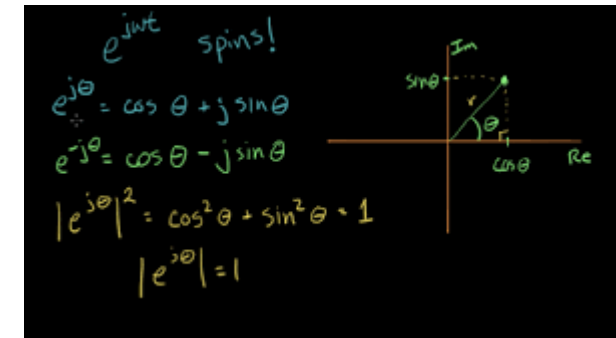 e^{jωt} spins!
e^{jθ} = cos θ + j sin θ
e^{-jθ} = cos θ - j sin θ
|e^{jθ}|^2 = cos^2 θ + sin^2 θ = 1
|e^{jθ}| = 1
Im
sinθ
r
θ
cosθ
Re